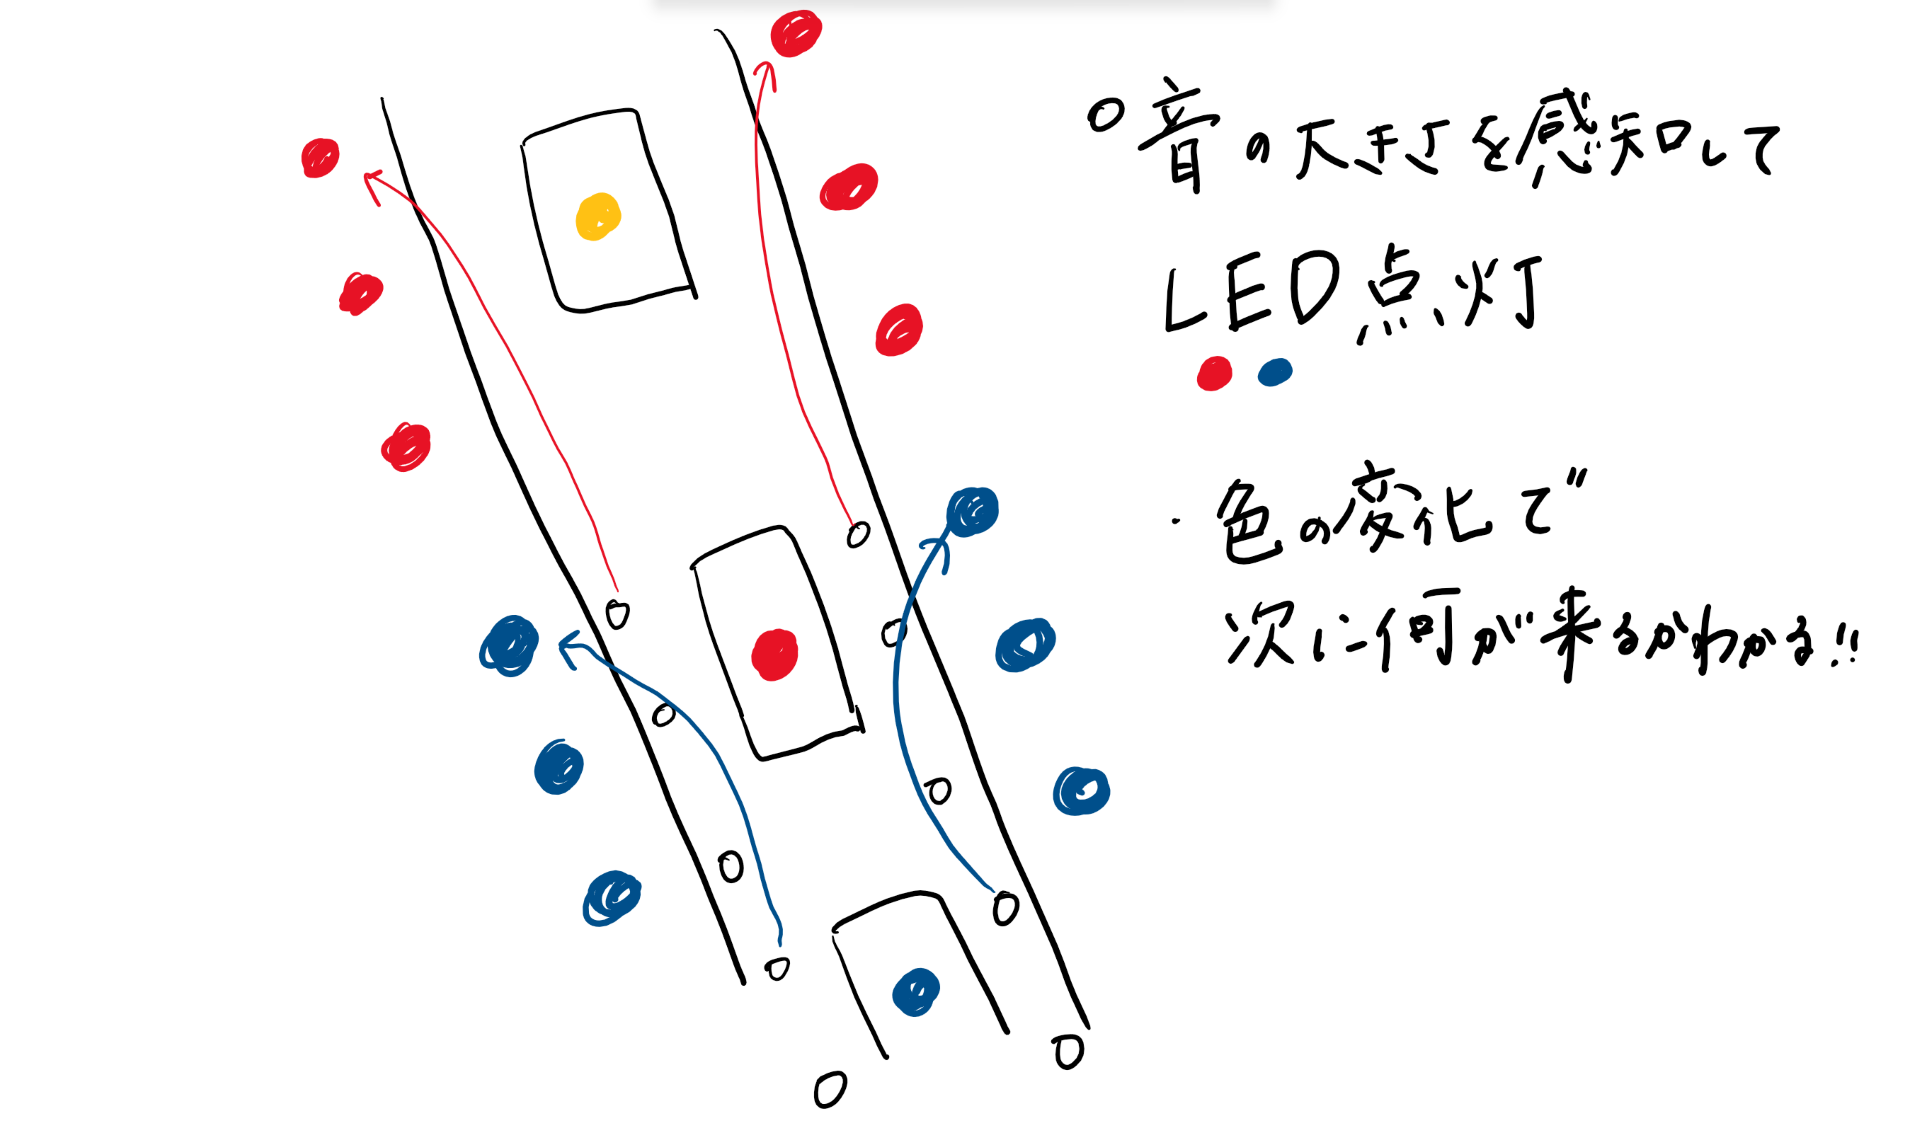 ○音の大きさを感知して
LED点灯
・色の変化で
次に何が来るかわかる!!